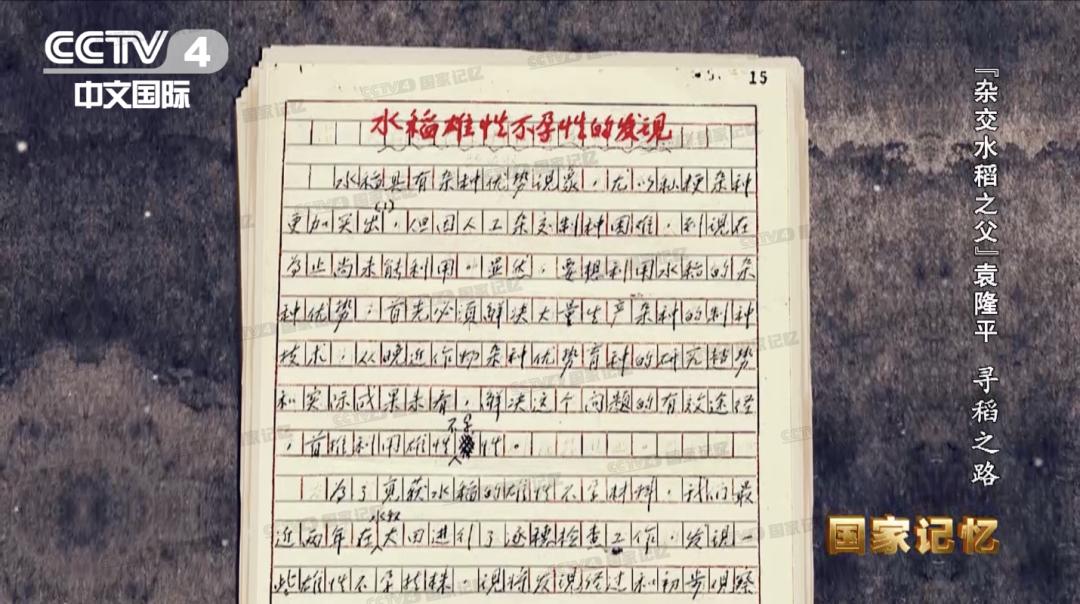 CCTV 4
中文国际
15
水稻雄性不孕性的发现
水稻具有杂种优势现象，尤以籼粳杂种
更加突出(1)，但因人工杂交制种困难，到现在
为止尚未能利用。显然，要想利用水稻的杂
种优势，首先必须解决大量生产杂种的制种
技术，从晚近作物杂种优势育种的研究趋势
和实际成果来看，解决这个问题的有效途径
，首推利用雄性不孕性。
为了更获水稻的雄性不孕材料，我们最
近两年在水稻大田进行了逐穗检查工作，发现一
些雄性不孕植株，现将发现经过和初步观察
『杂交水稻之父』袁隆平 寻稻之路
国家记忆